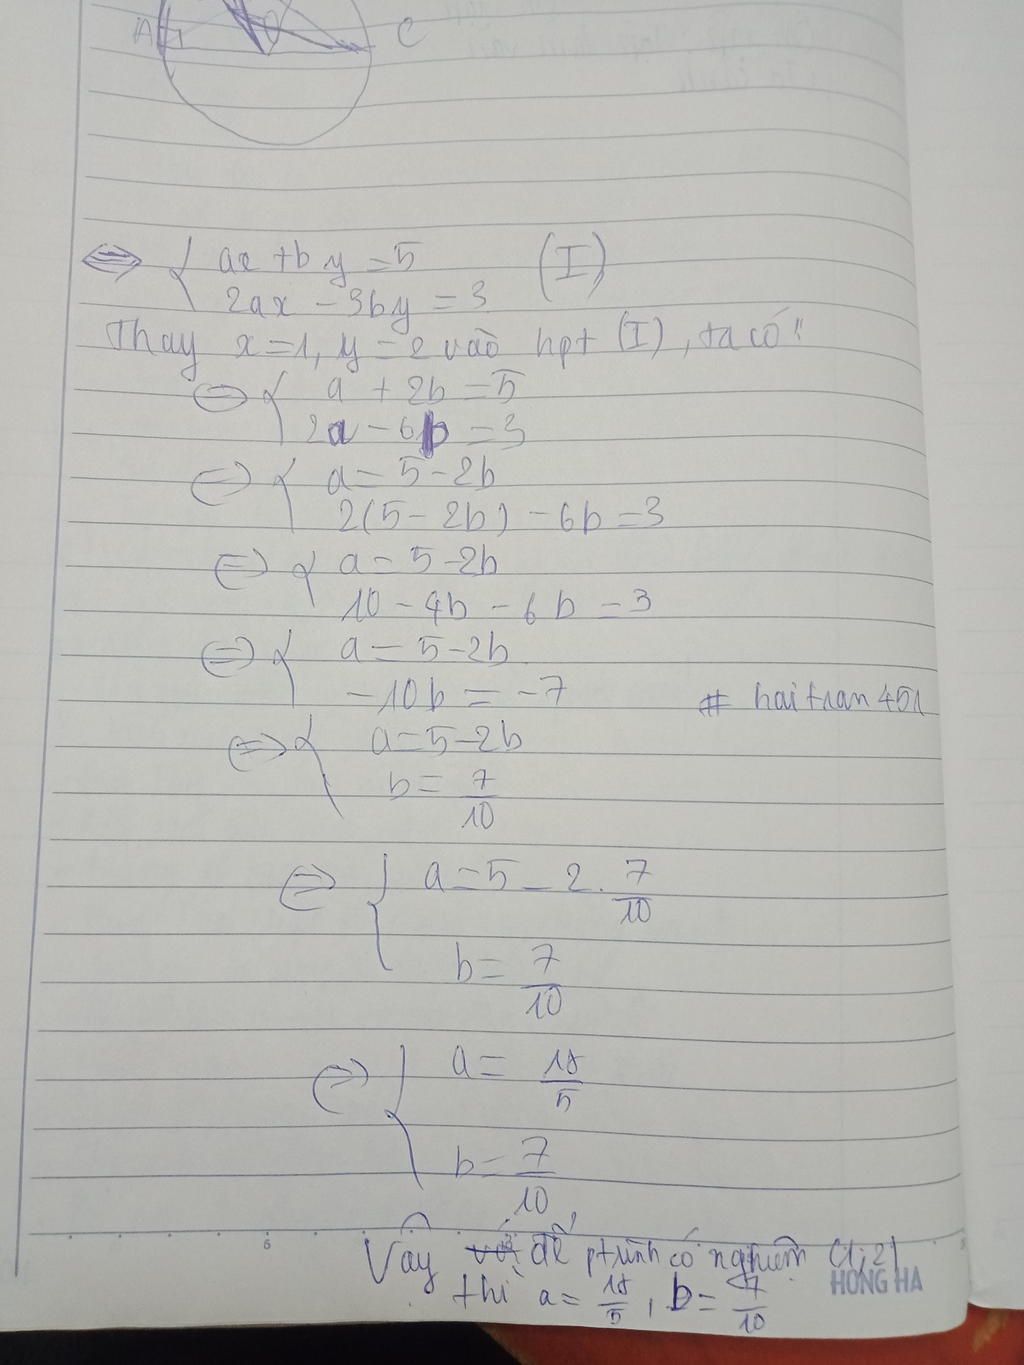 A C
⇔ { ax + by = 5 (I)
2ax - 3by = 3
Thay x = 1, y = 2 vào hpt (I), ta có:
⇔ { a + 2b = 5
2a - 6b = 3
⇔ { a = 5 - 2b
2(5 - 2b) - 6b = 3
⇔ { a = 5 - 2b
10 - 4b - 6b = 3
⇔ { a = 5 - 2b
-10b = -7
# haitran451
⇔ { a = 5 - 2b
b = 7/10
⇔ { a = 5 - 2. 7/10
b = 7/10
⇔ { a = 18/5
b = 7/10
6
Vậy để ptrình có nghiệm (1; 2)
HONG HA
thì a = 18/5, b = 7/10